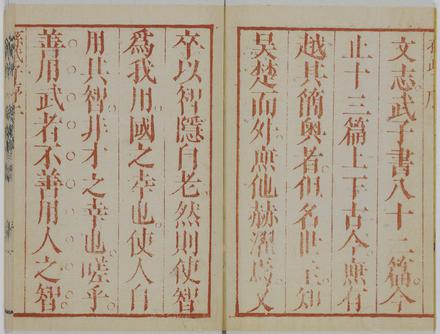 文志武子書八十二篇今
止十三篇上下古今無有
越其簡奧者但名世
吳楚而外無他赫濯焉又
卒以智隱自老然則使智
爲我用國之幸也使人自
用其智非才之幸也嗟乎
善用武者不善用人之智